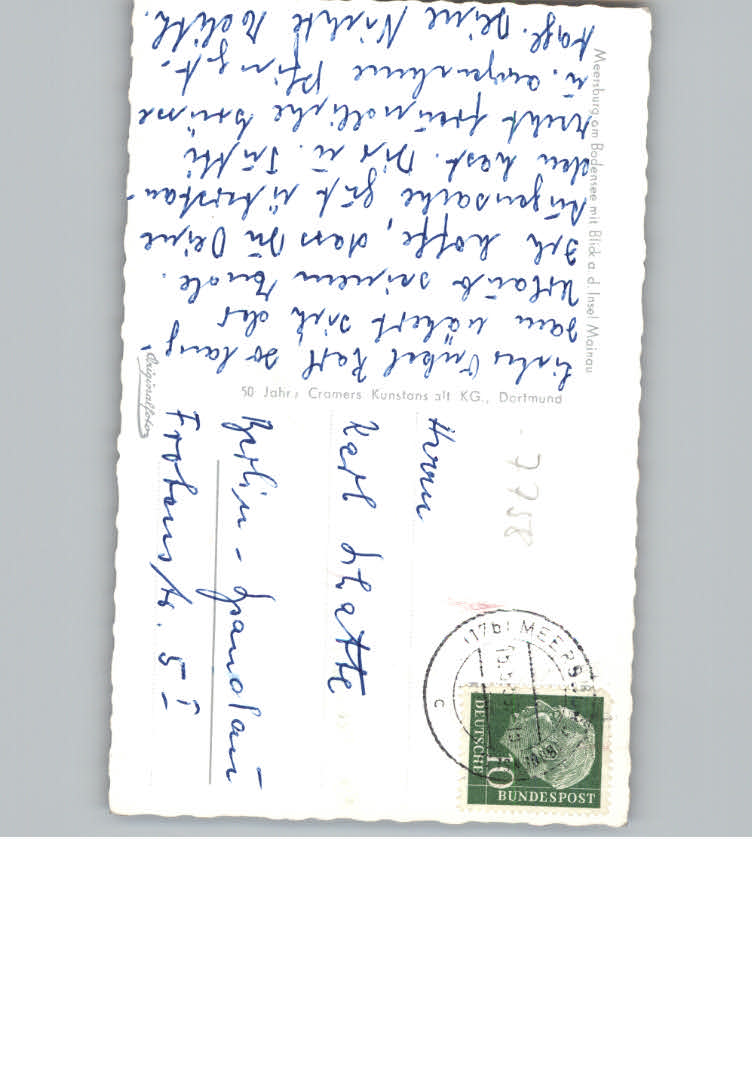 Meersburg am Bodensee mit Blick a. d. Insel Mainau
Lieber Onkel Karl so lang-
sam nähert sich der
Urlaub seinem Ende.
Ich hoffe, dass Du Deine
Augensache gut überstan-
den hast. Dir u.
recht freundliche Grüsse
u. angenehme Pfingst-
tage. Deine Nichte
50 Jahre Cramers Kunstanstalt KG., Dortmund
Originalfoto
Herrn
Karl
Berlin-Spandau
Frobenstr. 5 I
7758
(17b) MEERSBURG
DEUTSCHE
BUNDESPOST
10